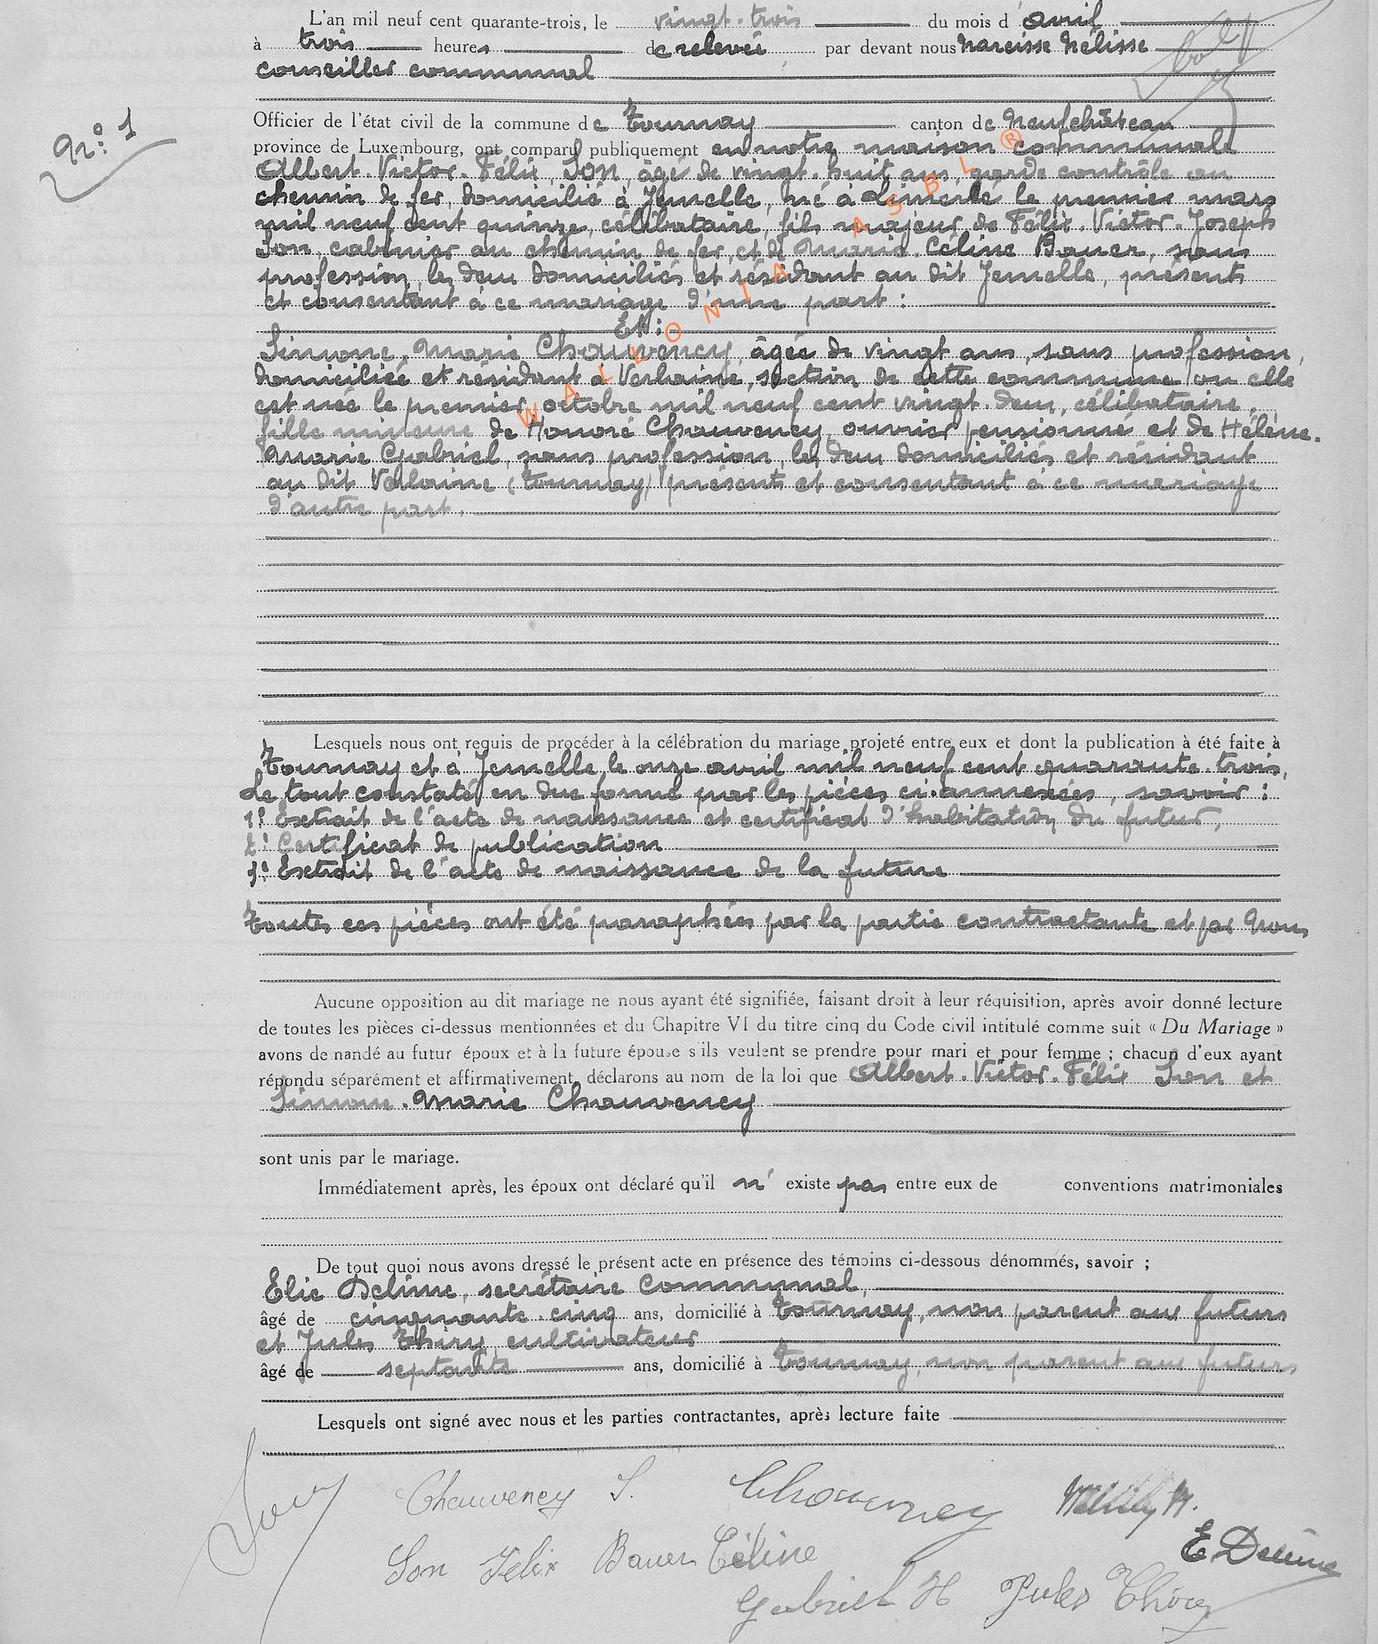 L'an mil neuf cent quarante-trois, le vingt-trois du mois d'avril
à trois heures de relevée par devant nous Narcisse Mélisse
conseiller communal
N° 1
Officier de l'état civil de la commune de Tournay canton de Neufchâteau
province de Luxembourg, ont comparu publiquement en notre maison communale
Albert-Victor-Félix Son, âgé de vingt-huit ans, garde contrôle au
chemin de fer, domicilié à Jemelle, né à Limerlé le premier mars
mil neuf cent quinze, célibataire, fils majeur de Félix-Victor-Joseph
Son, cabinier au chemin de fer, et de Marie-Céline Bauer, sans
profession, les deux domiciliés et résidant au dit Jemelle, présents
et consentant à ce mariage d'une part :
Et :
Simone-Marie Chauvency, âgée de vingt ans, sans profession,
domiciliée et résidant à Verlaine, section de cette commune où elle
est née le premier octobre mil neuf cent vingt-deux, célibataire,
fille mineure de Honoré Chauvency, ouvrier pensionné et de Hélène-
Marie Gabriel, sans profession, les deux domiciliés et résidant
au dit Verlaine (Tournay) présents et consentant à ce mariage
d'autre part.
WALLONIA ASBL ®
Lesquels nous ont requis de procéder à la célébration du mariage projeté entre eux et dont la publication à été faite à
Tournay et à Jemelle, le onze avril mil neuf cent quarante-trois,
Le tout constaté en due forme par les pièces ci-annexées, savoir :
1° Extrait de l'acte de naissance et certificat d'habitation du futur,
2° Certificat de publication
3° Extrait de l'acte de naissance de la future
Toutes ces pièces ont été paraphées par la partie contractante et par Nous
Aucune opposition au dit mariage ne nous ayant été signifiée, faisant droit à leur réquisition, après avoir donné lecture
de toutes les pièces ci-dessus mentionnées et du Chapitre VI du titre cinq du Code civil intitulé comme suit « Du Mariage »
avons demandé au futur époux et à la future épouse s'ils veulent se prendre pour mari et pour femme ; chacun d'eux ayant
répondu séparément et affirmativement, déclarons au nom de la loi que Albert-Victor-Félix Son et
Simone-Marie Chauvency
sont unis par le mariage.
Immédiatement après, les époux ont déclaré qu'il n' existe pas entre eux de conventions matrimoniales
De tout quoi nous avons dressé le présent acte en présence des témoins ci-dessous dénommés, savoir ;
Elie Delinne, secrétaire communal,
âgé de cinquante-cinq ans, domicilié à Tournay, non parent aux futurs
et Jules Thiry, cultivateur
âgé de septante ans, domicilié à Tournay, non parent aux futurs
Lesquels ont signé avec nous et les parties contractantes, après lecture faite
Chauvency S. Chauvency
Son Félix Bauer Céline
Gabriel H Jules Thiry